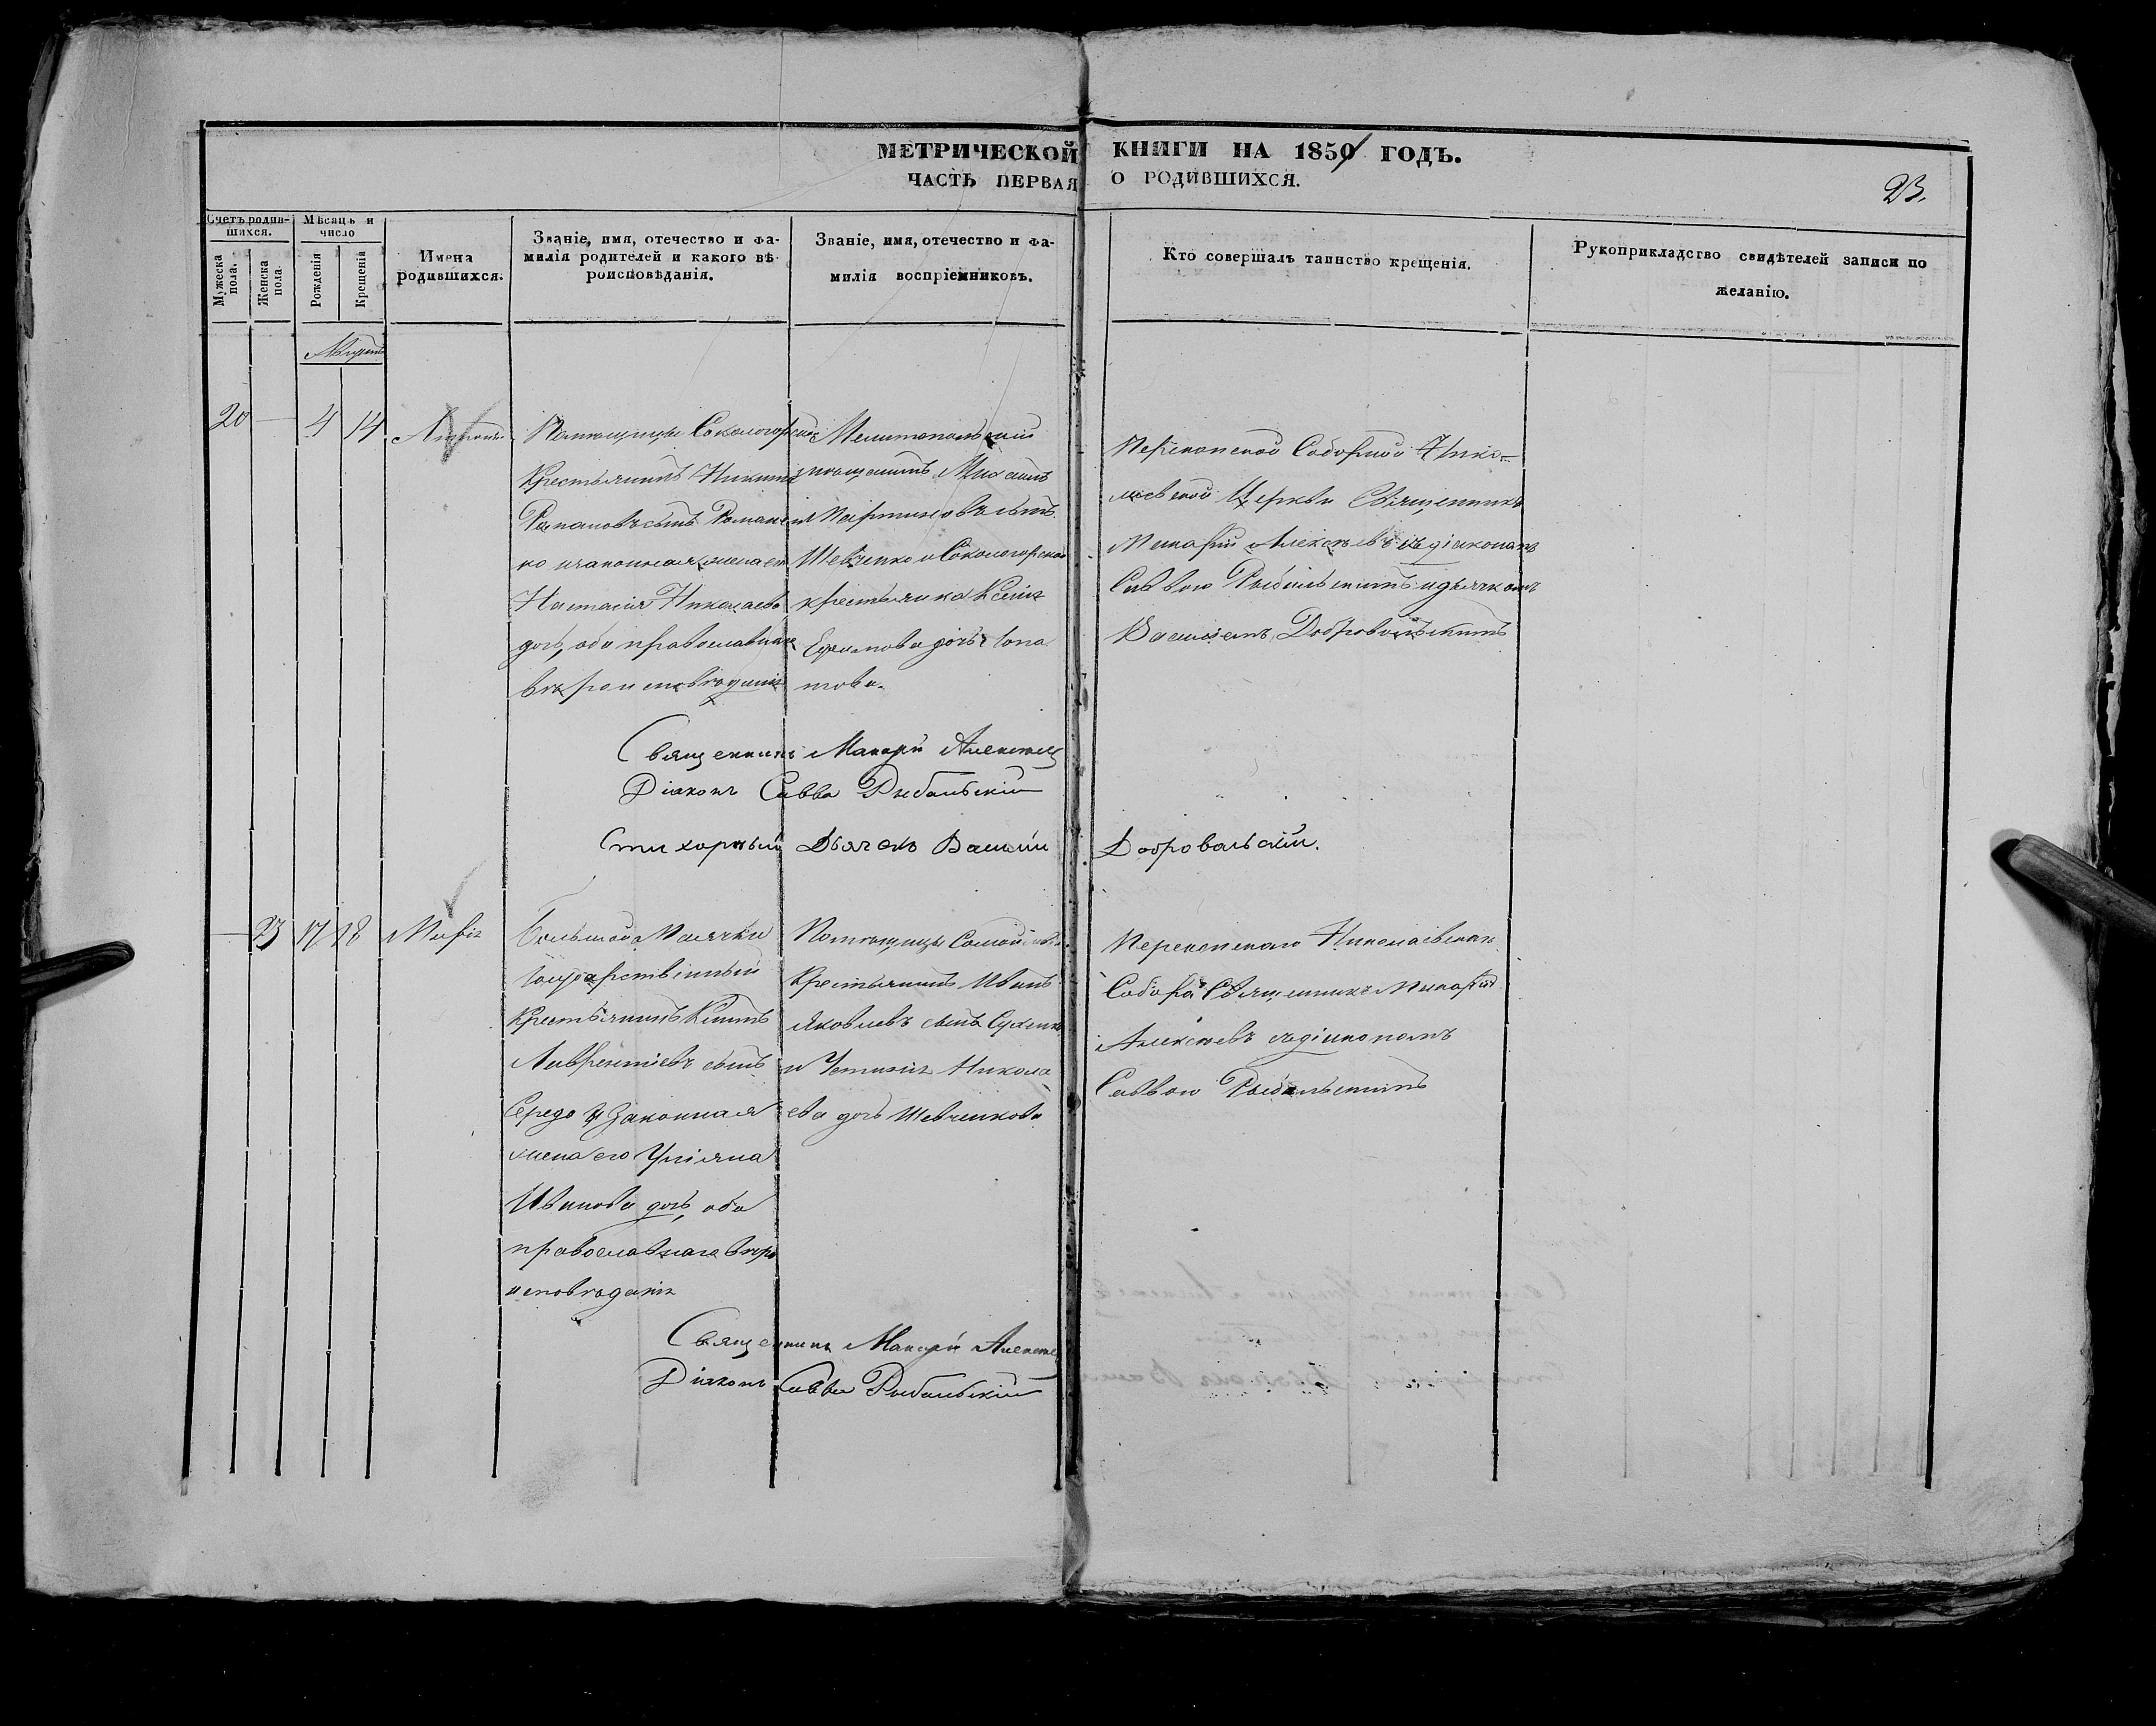 МЕТРИЧЕСКОЙ КНИГИ НА 1850 ГОДЪ.
ЧАСТЬ ПЕРВАЯ О РОДИВШИХСЯ.
23.
Счетъ родив-
шихся.
Мужеска
пола.
Женска
пола.
Мѣсяцъ и
число
Рожденія
Крещенія
Имена
родившихся.
Званіе, имя, отечество и фа-
милія родителей и какого вѣ-
роисповѣданія.
Званіе, имя, отечество и фа-
милія воспріемниковъ.
Кто совершалъ таинство крещенія.
Рукоприкладство свидѣтелей записи по
желанію.
Августъ
20 — 4 14
Помѣщицы
Крестьянинъ Никита
сынъ Романен
ко и законная жена его
Настасія Николаева
дочь, оба православнаго
вѣроисповѣданія
Мелитопольскій
мѣщанинъ Михаилъ
Мартиновъ сынъ
Шевченко и Сокологорская
крестьянка
дочь Лопа
това.
Перекопской Соборной Нико-
лаевской Церкви Священникъ
Макарій Алексѣевъ съ діакономъ
Саввою Рыбальскимъ и дьячкомъ
Василіемъ Добровольскимъ
Священникъ Макарій Алексѣевъ
Діаконъ Савва Рыбальскій
Стихарный Дьячокъ Василій Добровольскій.
— 23 17 18 Марія
Большой Маячки
Государственный
Крестьянинъ
Лаврентіевъ сынъ
Середа и Законная
жена его Уліяна
Иванова дочь, оба
православнаго вѣро
исповѣданія
Помѣщицы
Крестьянинъ Иванъ
Яковлевъ сынъ
и Никола
ева дочь Шевченкова
Перекопскаго Николаевскаго
Собора Священникъ Макарій
Алексѣевъ съ діакономъ
Саввою Рыбальскимъ
Священникъ Макарій Алексѣевъ
Діаконъ Савва Рыбальскій